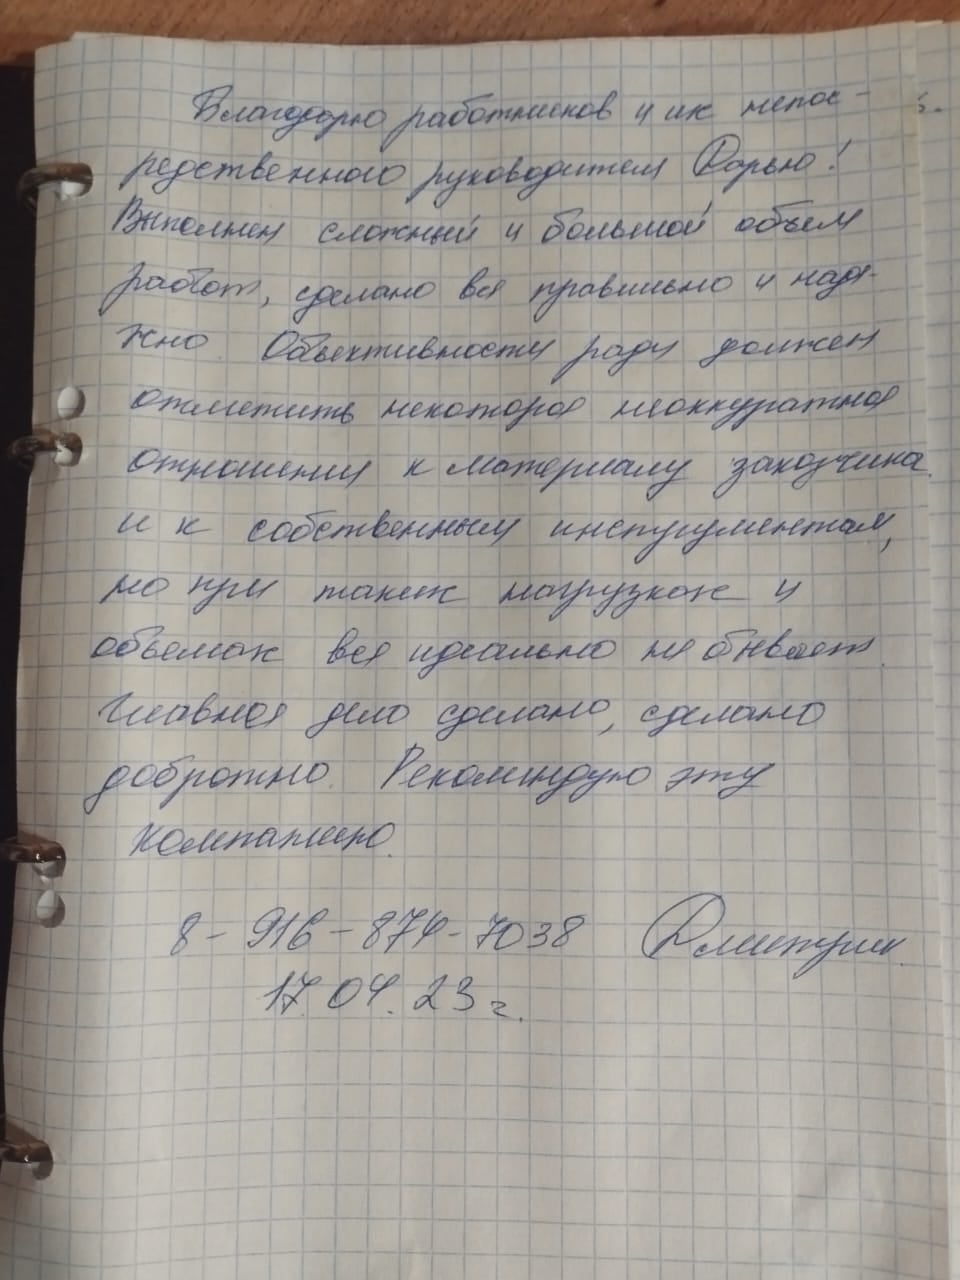 Благодарю работников и их непос-
редственного руководителя Дарью!
Выполнен сложный и большой объем
работ, сделано всё правильно и надё-
жно. Объективности ради должен
отметить некоторое неаккуратное
отношения к материалу заказчика
и к собственным инструментам,
но при таких нагрузках и
объемах всё идеально не бывает.
Главное дело сделано, сделано
добротно. Рекомендую эту
компанию.
8-916-874-7038 Дмитрий.
17.04.23г.